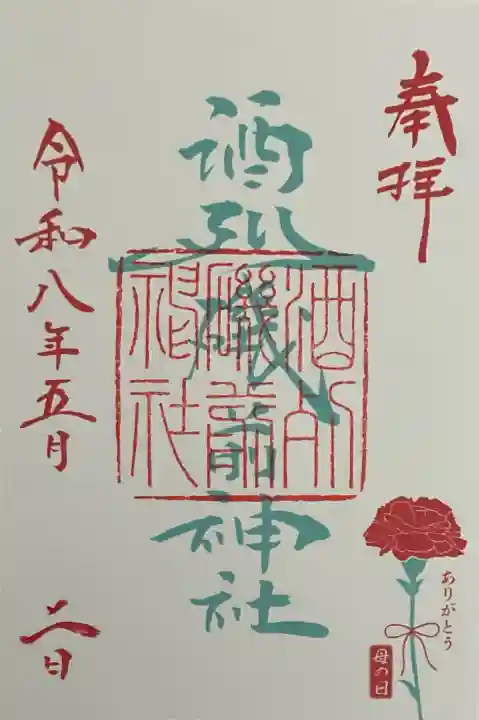 奉拝
酒列磯前神社
酒列
磯前
神社
令和八年五月
二日
ありがとう
母の日